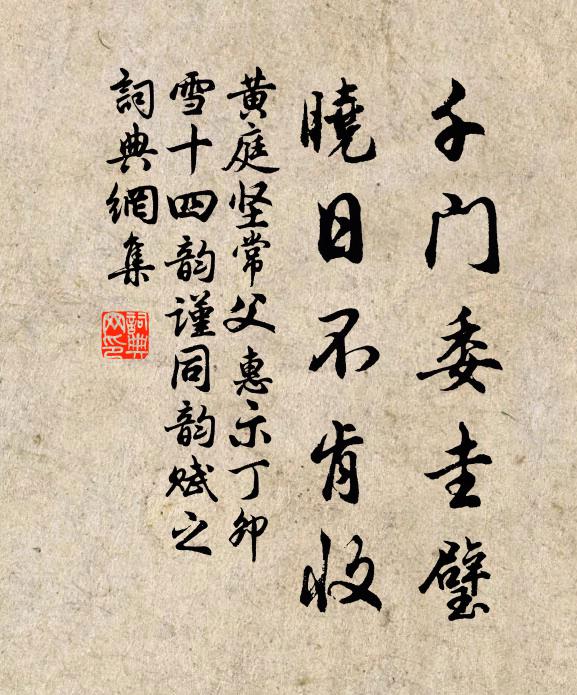 千門委圭璧
曉日不肯收
黄庭坚常父惠示丁卯
雪十四韵谨同韵赋之
詞典網集
詞典網印